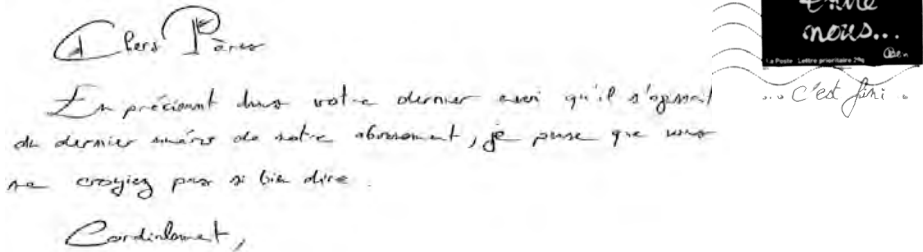 Chers Pères
En précisant dans votre dernier envoi qu'il s'agissait
du dernier numéro de notre abonnement, je pense que vous
ne croyiez pas si bien dire.
Cordialement,
Entre
nous...
Ben
La Poste Lettre prioritaire 20g
... c'est fini.